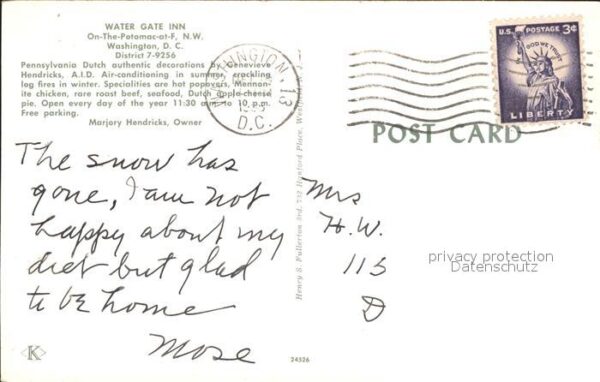 WATER GATE INN
On-The-Potomac-at-F, N.W.
Washington, D. C.
District 7-9256
Pennsylvania Dutch authentic decorations by Genevieve
Hendricks, A.I.D. Air-conditioning in summer, crackling
log fires in winter. Specialities are hot popovers, Mennon-
ite chicken, rare roast beef, seafood, Dutch apple-cheese
pie. Open every day of the year 11:30 am to 10 p.m.
Free parking.
Marjory Hendricks, Owner
WASHINGTON 13
D.C.
U.S. POSTAGE 3¢
IN GOD WE TRUST
LIBERTY
POST CARD
The snow has
gone, I am not
happy about my
diet but glad
to be home
Mose
Henry S. Fullerton 3rd, 732 Hanford Place, Westfield
Mrs
H.W.
115
D
privacy protection
Datenschutz
K
24526